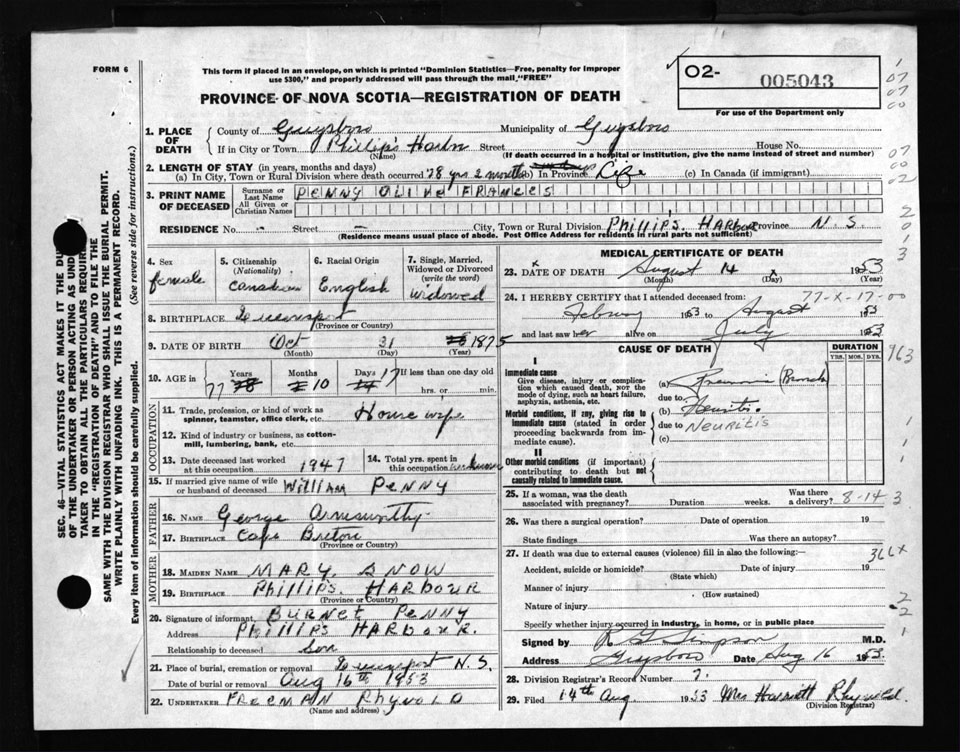 FORM 6
This form if placed in an envelope, on which is printed "Dominion Statistics—Free, penalty for improper
use $300," and properly addressed will pass through the mail, "FREE"
PROVINCE OF NOVA SCOTIA—REGISTRATION OF DEATH
O2- 005043
For use of the Department only
SEC. 46 VITAL STATISTICS ACT MAKES IT THE DU
OF THE UNDERTAKER OR PERSON ACTING AS UND
TAKER TO OBTAIN ALL THE PARTICULARS REQUIR
IN THE "REGISTRATION OF DEATH" AND TO FILE THE
SAME WITH THE DIVISION REGISTRAR WHO SHALL ISSUE THE BURIAL PERMIT.
WRITE PLAINLY WITH UNFADING INK. THIS IS A PERMANENT RECORD.
Every item of information should be carefully supplied. (See reverse side for instructions.)
1. PLACE OF DEATH County of Guysboro Municipality of Guysboro
If in City or Town Phillips Harbor Street House No.
(Name) (If death occurred in a hospital or institution, give the name instead of street and number)
2. LENGTH OF STAY (in years, months and days)
(a) In City, Town or Rural Division where death occurred 78 yrs 2 months (b) In Province Life (c) In Canada (if immigrant)
3. PRINT NAME OF DECEASED Surname or Last Name PENNY OLIVE FRANCES
All Given or Christian Names
RESIDENCE No. - Street - City, Town or Rural Division PHILLIPS. HARBOUR Province N.S.
(Residence means usual place of abode. Post Office Address for residents in rural parts not sufficient)
4. Sex female
5. Citizenship (Nationality) Canadian
6. Racial Origin English
7. Single, Married, Widowed or Divorced (write the word) widowed
8. BIRTHPLACE Queensport
(Province or Country)
9. DATE OF BIRTH Oct 31 1875
(Month) (Day) (Year)
10. AGE in Years 77 Months 10 Days 17 If less than one day old
hrs. or min.
OCCUPATION
11. Trade, profession, or kind of work as spinner, teamster, office clerk, etc. House wife
12. Kind of industry or business, as cotton-mill, lumbering, bank, etc.
13. Date deceased last worked at this occupation 1947
14. Total yrs. spent in this occupation
15. If married give name of wife or husband of deceased WILLIAM PENNY
FATHER
16. NAME George Armsworthy
17. BIRTHPLACE Cape Breton
(Province or Country)
MOTHER
18. MAIDEN NAME MARY. SNOW
19. BIRTHPLACE PHILLIPS. HARBOUR
(Province or Country)
20. Signature of informant BURNET PENNY
Address PHILLIPS HARBOUR.
Relationship to deceased Son
21. Place of burial, cremation or removal Queensport N.S.
Date of burial or removal Aug 16th 1953
22. UNDERTAKER FREEMAN RHYNOLD
(Name and address)
MEDICAL CERTIFICATE OF DEATH
23. DATE OF DEATH August 14 1953
(Month) (Day) (Year)
24. I HEREBY CERTIFY that I attended deceased from: 77-X-17-00
February 1953 to August 1953
and last saw her alive on July 1953
CAUSE OF DEATH DURATION
YRS. MOS. DYS.
I
Immediate cause
Give disease, injury or complication which caused death, not the mode of dying, such as heart failure, asphyxia, asthenia, etc.
(a)
due to
Morbid conditions, if any, giving rise to immediate cause (stated in order proceeding backwards from immediate cause).
(b) Neuritis
due to NEURITIS
(c)
II
Other morbid conditions (if important) contributing to death but not causally related to immediate cause.
25. If a woman, was the death associated with pregnancy? Duration weeks. Was there a delivery? 8-14 3
26. Was there a surgical operation? Date of operation 19
State findings Was there an autopsy?
27. If death was due to external causes (violence) fill in also the following:— 366X
Accident, suicide or homicide? Date of injury 19
(State which)
Manner of injury
(How sustained)
Nature of injury
Specify whether injury occurred in industry, in home, or in public place
Signed by R G Simpson M.D.
Address Guysboro Date Aug 16 1953.
28. Division Registrar's Record Number 7.
29. Filed 14th Aug. 1953 Mrs Harriett Rhynold.
(Division Registrar)